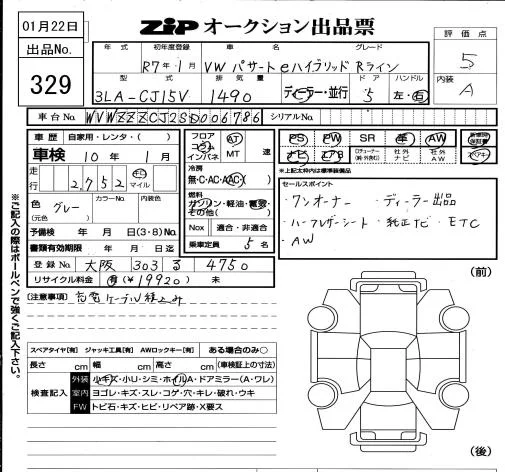 01月22日
ZIPオークション出品票
評価点
出品No.
5
329
年式 初年度登録 車名 グレード
R7年・1月 VW パサートeハイブリッド Rライン
内装
A
型式 排気量 ドア ハンドル
3LA-CJ15V 1490 ディーラー・並行 5 左・右
車台No. WVWZZZCJ2SD006786 シリアルNo.
車歴 自家用・レンタ・( )
車検 10年 1月
フロア コラム インパネ AT MT 速
PS PW SR 革 AW
ナビ エアB 社外ナビ 社外AW
走行 2,752 km マイル
冷房 無・C・AC・AAC・( )
※上記太枠内は標準装備品
セールスポイント
色 グレー (元色) カラーNo. 内装色
燃料 ガソリン・軽油・電気・その他( )
・ワンオーナー ・ディーラー出品
・ハーフレザーシート ・純正ナビ・ETC
・AW
予備検 年 月 日(3・8)No.
Nox 適合・非適合
書類有効期限 年 月 日迄
乗車定員 5名
登録No. 大阪 303 る 4750
リサイクル料金 有(¥19920) 未
(前)
[注意事項] 充電ケーブル積込み
※ご記入の際はボールペンで強くご記入下さい。
スペアタイヤ[有] ジャッキ工具[有] AWロックキー[有] ある場合のみ○
長さ cm 幅 cm 高さ cm (車検証上の寸法)
検査記入
外装 小キズ・小U・シミ・ホイルA・ドアミラー(A・ワレ)
室内 ヨゴレ・キズ・スレ・コゲ・穴・キレ・破れ・ウキ
FW トビ石・キズ・ヒビ・リペア跡・X要ス
(後)